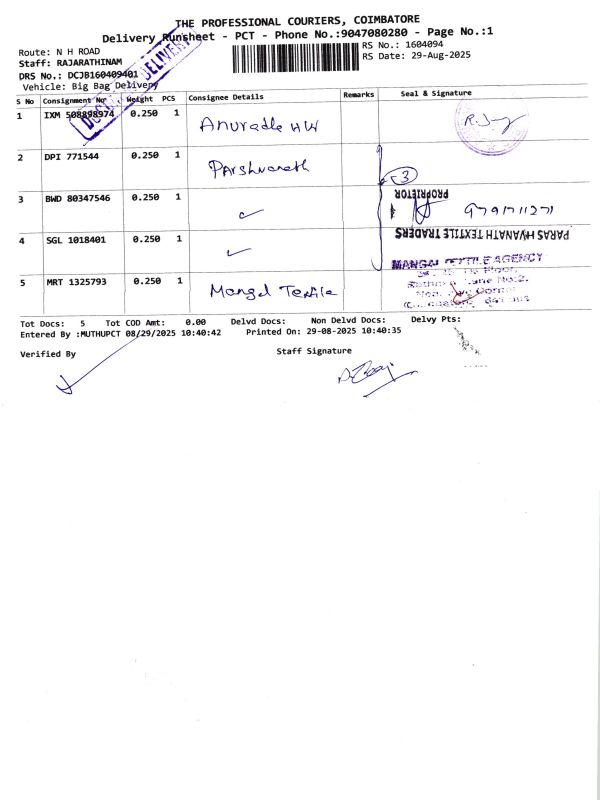 THE PROFESSIONAL COURIERS, COIMBATORE
Delivery Runsheet - PCT - Phone No.:9047080280 - Page No.:1
Route: N H ROAD
RS No.: 1604094
Staff: RAJARATHINAM
RS Date: 29-Aug-2025
DRS No.: DCJB160409401
Vehicle: Big Bag Delivery
DELIVERY
S No Consignment No Weight PCS Consignee Details Remarks Seal & Signature
1 IXM 508898974 0.250 1 Anuradha HW
2 DPI 771544 0.250 1 Parshwanath
3
PROPRIETOR
3 BWD 80347546 0.250 1
9791711271
4 SGL 1018401 0.250 1
PARASHVANATH TEXTILE TRADERS
MANGAL TEXTILE AGENCY
5 MRT 1325793 0.250 1 Mangal Textile
Tot Docs: 5 Tot COD Amt: 0.00 Delvd Docs: Non Delvd Docs: Delvy Pts:
Entered By :MUTHUPCT 08/29/2025 10:40:42 Printed On: 29-08-2025 10:40:35
Verified By Staff Signature